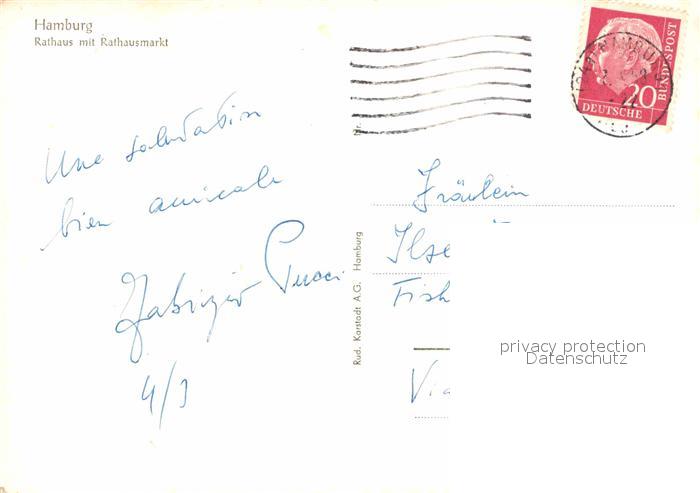 Hamburg
Rathaus mit Rathausmarkt
Une salutation
bien amicale
Fabrizio Pucci
4/3
Rud. Karstadt A.G. Hamburg
Fräulein
Ilse
Fisch
Via
20
DEUTSCHE
BUNDESPOST
HAMBURG
privacy protection
Datenschutz